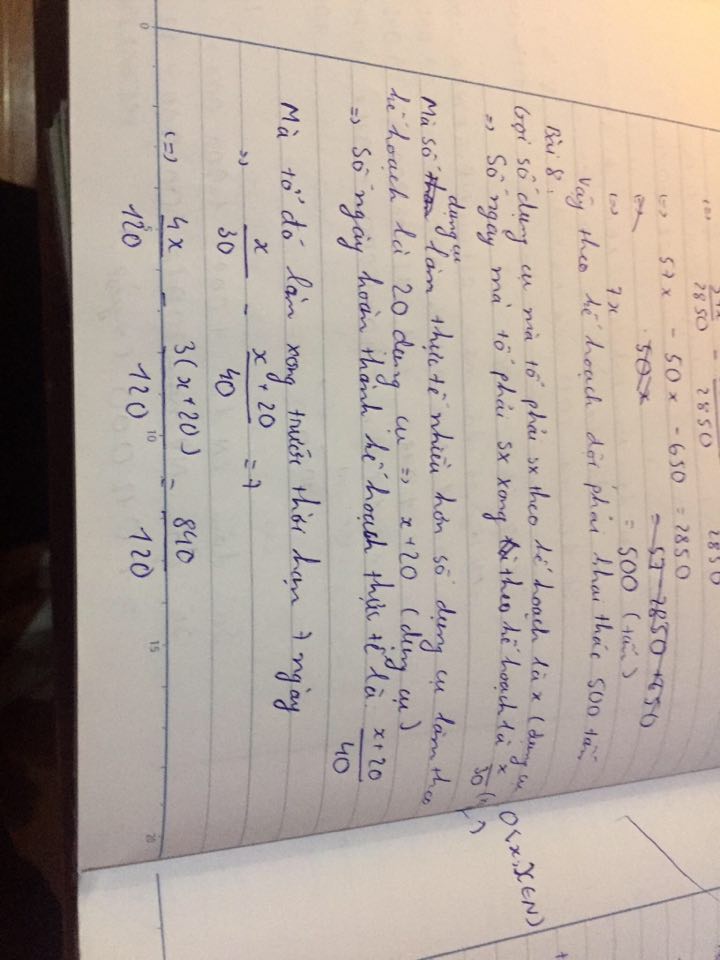 2850 2850 2850
(=) 57x - 50x - 650 = 2850
50x = 57 2850 + 650
(=) 7x = 500 (tấn)
Vậy theo kế hoạch đội phải khai thác 500 tấn
Bài 8:
Gọi số dụng cụ mà tổ phải sx theo kế hoạch là x (dụng cụ 0<x, x∈N)
=> Số ngày mà tổ phải sx xong theo kế hoạch là x/30
Mà số dụng cụ làm thực tế nhiều hơn số dụng cụ làm theo
kế hoạch là 20 dụng cụ => x+20 (dụng cụ)
=> Số ngày hoàn thành kế hoạch thực tế là x+20/40
Mà tổ đó làm xong trước thời hạn 7 ngày
=> x/30 - x+20/40 = 7
(=) 4x/120 - 3(x+20)/120 = 840/120
0 5 10 15 20